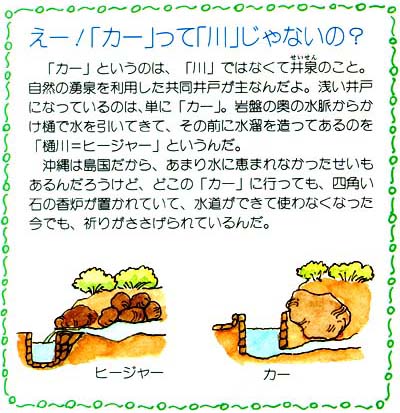 えー！「カー」って「川」じゃないの？
「カー」というのは、「川」ではなくて井泉のこと。
せいせん
自然の湧泉を利用した共同井戸が主なんだよ。浅い井戸
になっているのは、単に「カー」。岩盤の奥の水脈からか
け樋で水を引いてきて、その前に水溜を造ってあるのを
「樋川＝ヒージャー」というんだ。
沖縄は島国だから、あまり水に恵まれなかったせいも
あるんだろうけど、どこの「カー」に行っても、四角い
石の香炉が置かれていて、水道ができて使わなくなった
今でも、祈りがささげられているんだ。
ヒージャー
カー